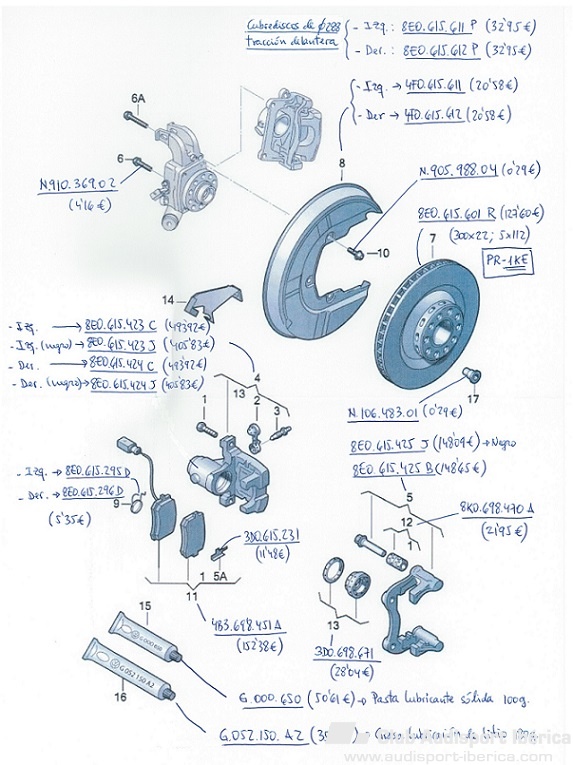 Cubrediscos de φ288 - Izq.: 8E0.615.611 P (32'95€)
tracción delantera - Der.: 8E0.615.612 P (32'95€)
- Izq → 4F0.615.611 (20'58€)
- Der → 4F0.615.612 (20'58€)
6A
8
6
N.910.369.02
(4'16€)
N.905.988.04 (0'29€)
8E0.615.601 R (127'60€)
(300x22; 5x112)
7
PR-1KE
10
14
- Izq. → 8E0.615.423 C (493'92€)
- Izq. (negro) → 8E0.615.423 J (405'83€)
- Der. → 8E0.615.424 C (493'92€)
- Der. (negro) → 8E0.615.424 J (405'83€)
4
13
1 2 3
17
N.106.483.01 (0'29€)
8E0.615.425 J (148'09€) → Negro
8E0.615.425 B (148'65€)
- Izq. → 8E0.615.295 D
- Der. → 8E0.615.296 D
9
(5'35€)
5
12
1
8K0.698.470 A
(21'95€)
3D0.615.231
(11'48€)
1 5A
11
13
4B3.698.451 A
(152'38€)
3D0.698.671
(28'04€)
15
G 000 650
G 052 150 A2
16
G.000.650 (50'61€) → Pasta lubricante sólida 100g.
G.052.150.A2 → Grasa lubricación de litio
Club Audisport Iberica
www.audisport-iberica.com